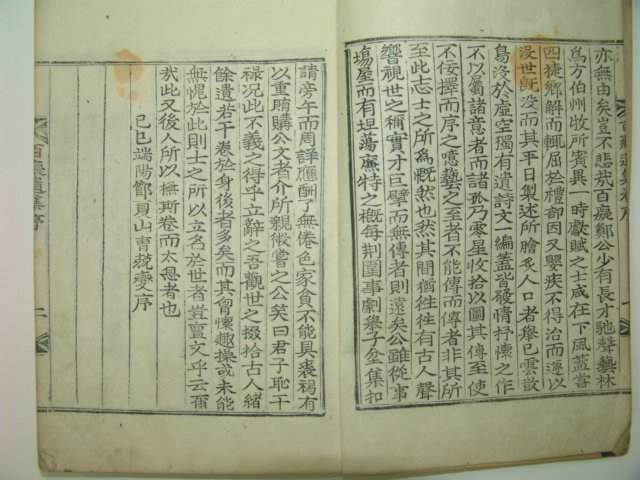 亦無由矣豈不悲哉百癡鄭公少有長才馳聲藝林
爲方伯州牧所賓異一時獻賦之士咸在下風蓋嘗
四捷鄕解而輒屈於禮部因又嬰疾不得治而遂以
浸世旣沒而其平日製述所膾炙人口者擧已雲散
鳥沒於虛空獨有遺詩文一編蓋皆發情抒懷之作
不以屬諸意者而諸孤乃零星收拾以圖其傳至使
不佞擇而序之噫藝之至者不能傳而傳者非其所
至此志士之所爲慨然也然其間猶徃徃有古人聲
響視世之稱實才巨擘而無傳者則遠矣公雖從事
塲屋而有坦蕩廉特之槪每荆圍事劇擧子坌集扣
請旁午而周詳應酬了無倦色家貧不能具裘裼有
以重賄購公文者介所親微嘗之公笑曰君子恥干
祿况此不義之得乎立辭之吾觀世之掇拾古人緖
餘遺若干卷於身後者多矣而其胷懷趣操或未能
無愧於此則士之所以立名於世者豈亶文乎云爾
哉此又後人所以撫斯卷而太息者也
己巳端陽節夏山曺兢燮序
百癡遺集序
二